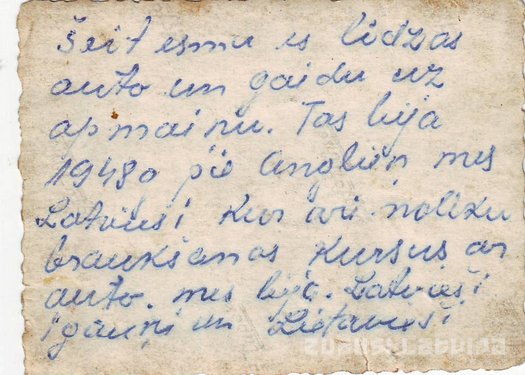 Šeit esmu es līdzas
auto un gaidu uz
apmaiņu. Tas bija
1948g pie Angļiem mes
Latvieši kur arī noliku
braukšanas kursus ar
auto. mes bija. Latvieši
igauņi un Lietavieši